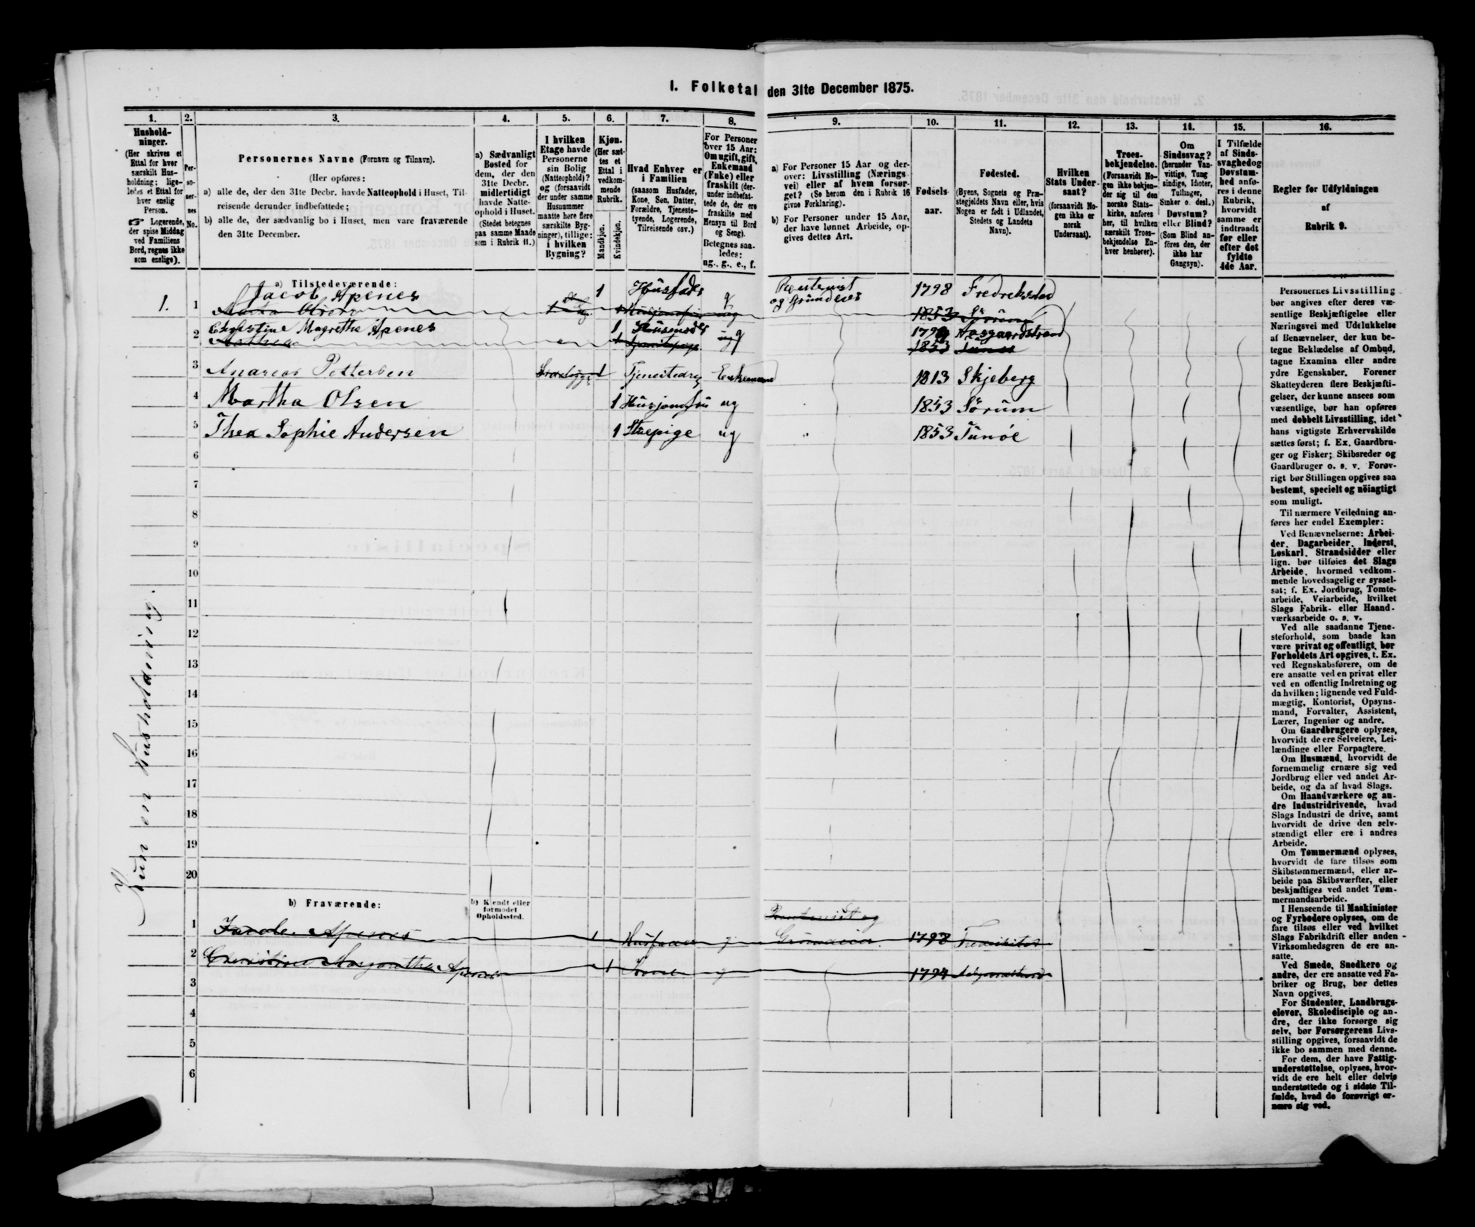 I. Folketal den 31te December 1875.
1. 2. 3. 4. 5. 6. 7. 8. 9. 10. 11. 12. 13. 14. 15. 16.
Hushold-
ninger.
(Her skrives et
Ettal for hver
særskilt Hus-
holdning; lige-
ledes et Ettal for
hver enslig
Person.
☞ Logerende,
der spise Middag
ved Familiens
Bord, regnes ikke
som enslige).
Per-
so-
ner-
nes
No.
Personernes Navne (Fornavn og Tilnavn).
(Her opføres:
a) alle de, der den 31te Decbr. havde Natteophold i Huset, Til-
reisende derunder indbefattede;
b) alle de, der sædvanlig bo i Huset, men vare fraværende
den 31te December.
a) Sædvanligt
Bosted for
dem, der den
31te Decbr.
midlertidigt
havde Natte-
ophold i Huset.
(Stedet betegnes
paa samme Maade
som i Rubrik 11.)
I hvilken
Etage havde
Personerne
sin Bolig
(Natteophold)?
og (forsaavidt
der under samme
Husnummer
maatte høre flere
særskilte Byg-
ninger), tillige:
i hvilken
Bygning?
Kjøn.
(Her sæt-
tes et
Ettal i
vedkom-
mende
Rubrik.
Mandkjøn.
Kvindekjøn.
Hvad Enhver er
i Familien
(saasom Husfader,
Kone, Søn, Datter,
Forældre, Tjeneste-
tyende, Logerende,
Tilreisende osv.)
For Personer
over 15 Aar:
Om ugift, gift,
Enkemand
(Enke) eller
fraskilt (der-
under indbefat-
tede de, der ere
fraskilte med
Hensyn til Bord
og Seng).
Betegnes saa-
ledes:
ug., g., e., f.
a) For Personer 15 Aar og der-
over: Livsstilling (Nærings-
vei) eller af hvem forsør-
get? (Se herom den i Rubrik 16
givne Forklaring).
b) For Personer under 15 Aar,
der have lønnet Arbeide, op-
gives dettes Art.
Fødsels-
aar.
Fødested.
(Byens, Sognets og Præ-
stegjeldets Navn eller, hvis
Nogen er født i Udlandet,
Stedets og Landets
Navn).
Hvilken
Stats Under-
saat?
(forsaavidt No-
gen ikke er
norsk
Undersaat).
Troes-
bekjendelse.
(Forsaavidt No-
gen ikke bekjen-
der sig til den
norske Stats-
kirke, anføres
her, til hvilken
særskilt Troes-
bekjendelse En-
hver henhører).
Om
Sindssvag?
(herunder Van-
vittige, Tung-
sindige, Idioter,
Tullinger,
Sinker o. desl.)
Døvstum?
eller Blind?
(Som Blind an-
føres den, der
ikke har
Gangsyn).
I Tilfælde
af Sinds-
svaghed og
Døvstum-
hed anfø-
res i denne
Rubrik,
hvorvidt
samme er
indtraadt
før eller
efter det
fyldte
4de Aar.
Regler for Udfyldningen
af
Rubrik 9.
a) Tilstedeværende:
1. 1 Jacob Apenes 1 Husfader g og 1798 Fredrikstad
1853 Sørum
2 Christine Magrethe Apenes 1 Husmoder g Aasgaardstrand
1853
3 Andreas Pettersen 1 Enkemand 1813 Skjeberg
4 Martha Olsen 1 ug 1853 Sørum
5 Thea Sophie Andersen 1 Stuepige ug 1853 Tunøe
6
7
8
9
10
11
12
13
14
15
16
17
18
19
20
Kun en Husholdning.
b) Fraværende:
b) Kjendt eller
formodet
Opholdssted.
1 Apenes 1 g 1798
2 Christine Apenes 1 g 1794
3
4
5
6
Personernes Livsstilling
bør angives efter deres væ-
sentlige Beskjæftigelse eller
Næringsvei med Udelukkelse
af Benævnelser, der kun be-
tegne Bekladelse af Ombud,
tagne Examina eller andre
ydre Egenskaber. Forener
Skatteyderen flere Beskjæfti-
gelser, der kunne ansees som
væsentlige, bør han opføres
med dobbelt Livsstilling, idet
hans vigtigste Erhvervskilde
sættes først; f. Ex. Gaardbru-
ger og Fisker; Skibsreder og
Gaardbruger o. s. v. Forøv-
rigt bør Stillingen opgives saa
bestemt, specielt og nöiagtigt
som muligt.
Til nærmere Veiledning an-
føres her endel Exempler:
Ved Benævnelserne: Arbei-
der, Dagarbeider, Inderst,
Løskarl, Strandsidder eller
lign. bør tilføies det Slags
Arbeide, hvormed vedkom-
mende hovedsagelig er syssel-
sat; f. Ex. Jordbrug, Tomte-
arbeide, Veiarbeide, hvilket
Slags Fabrik- eller Haand-
værksarbeide o. s. v.
Ved alle saadanne Tjene-
steforhold, som baade kan
være privat og offentligt, bør
Forholdets Art opgives, f. Ex.
ved Regnskabsførere, om de
ere ansatte ved en privat eller
ved en offentlig Indretning og
da hvilken; lignende ved Fuld-
mægtig, Kontorist, Opsyns-
mand, Forvalter, Assistent,
Lærer, Ingeniør og andre.
Om Gaardbrugere oplyses,
hvorvidt de ere Selveiere, Lei-
lændinge eller Forpagtere.
Om Husmænd, hvorvidt de
fornemmelig ernære sig ved
Jordbrug eller ved andet Ar-
beide, og da af hvad Slags.
Om Haandværkere og an-
dre Industridrivende, hvad
Slags Industri de drive, samt
hvorvidt de drive den selv-
stændigt eller ere i andres
Arbeide.
Om Tømmermænd oplyses,
hvorvidt de fare tilsøs som
Skibstømmermænd, eller ar-
beide paa Skibsværfter, eller
beskjæftiges ved andet Tøm-
mermandsarbeide.
I Henseende til Maskinister
og Fyrbødere oplyses, om de
fare tilsøs eller ved hvilket
Slags Fabrikdrift eller anden
Virksomhedsgren de ere an-
satte.
Ved Smede, Snedkere og
andre, der ere ansatte ved Fa-
briker og Brug, bør dettes
Navn opgives.
For Studenter, Landbrugs-
elever, Skoledisciple og an-
dre, der ikke forsørge sig
selv, bør Forsørgerens Livs-
stilling opgives, forsaavidt de
ikke bo sammen med denne.
For dem, der have Fattig-
understøttelse, oplyses, hvor-
vidt de ere helt eller delvis
understøttede og i sidste Til-
fælde, hvad de forøvrigt er-
nære sig ved.